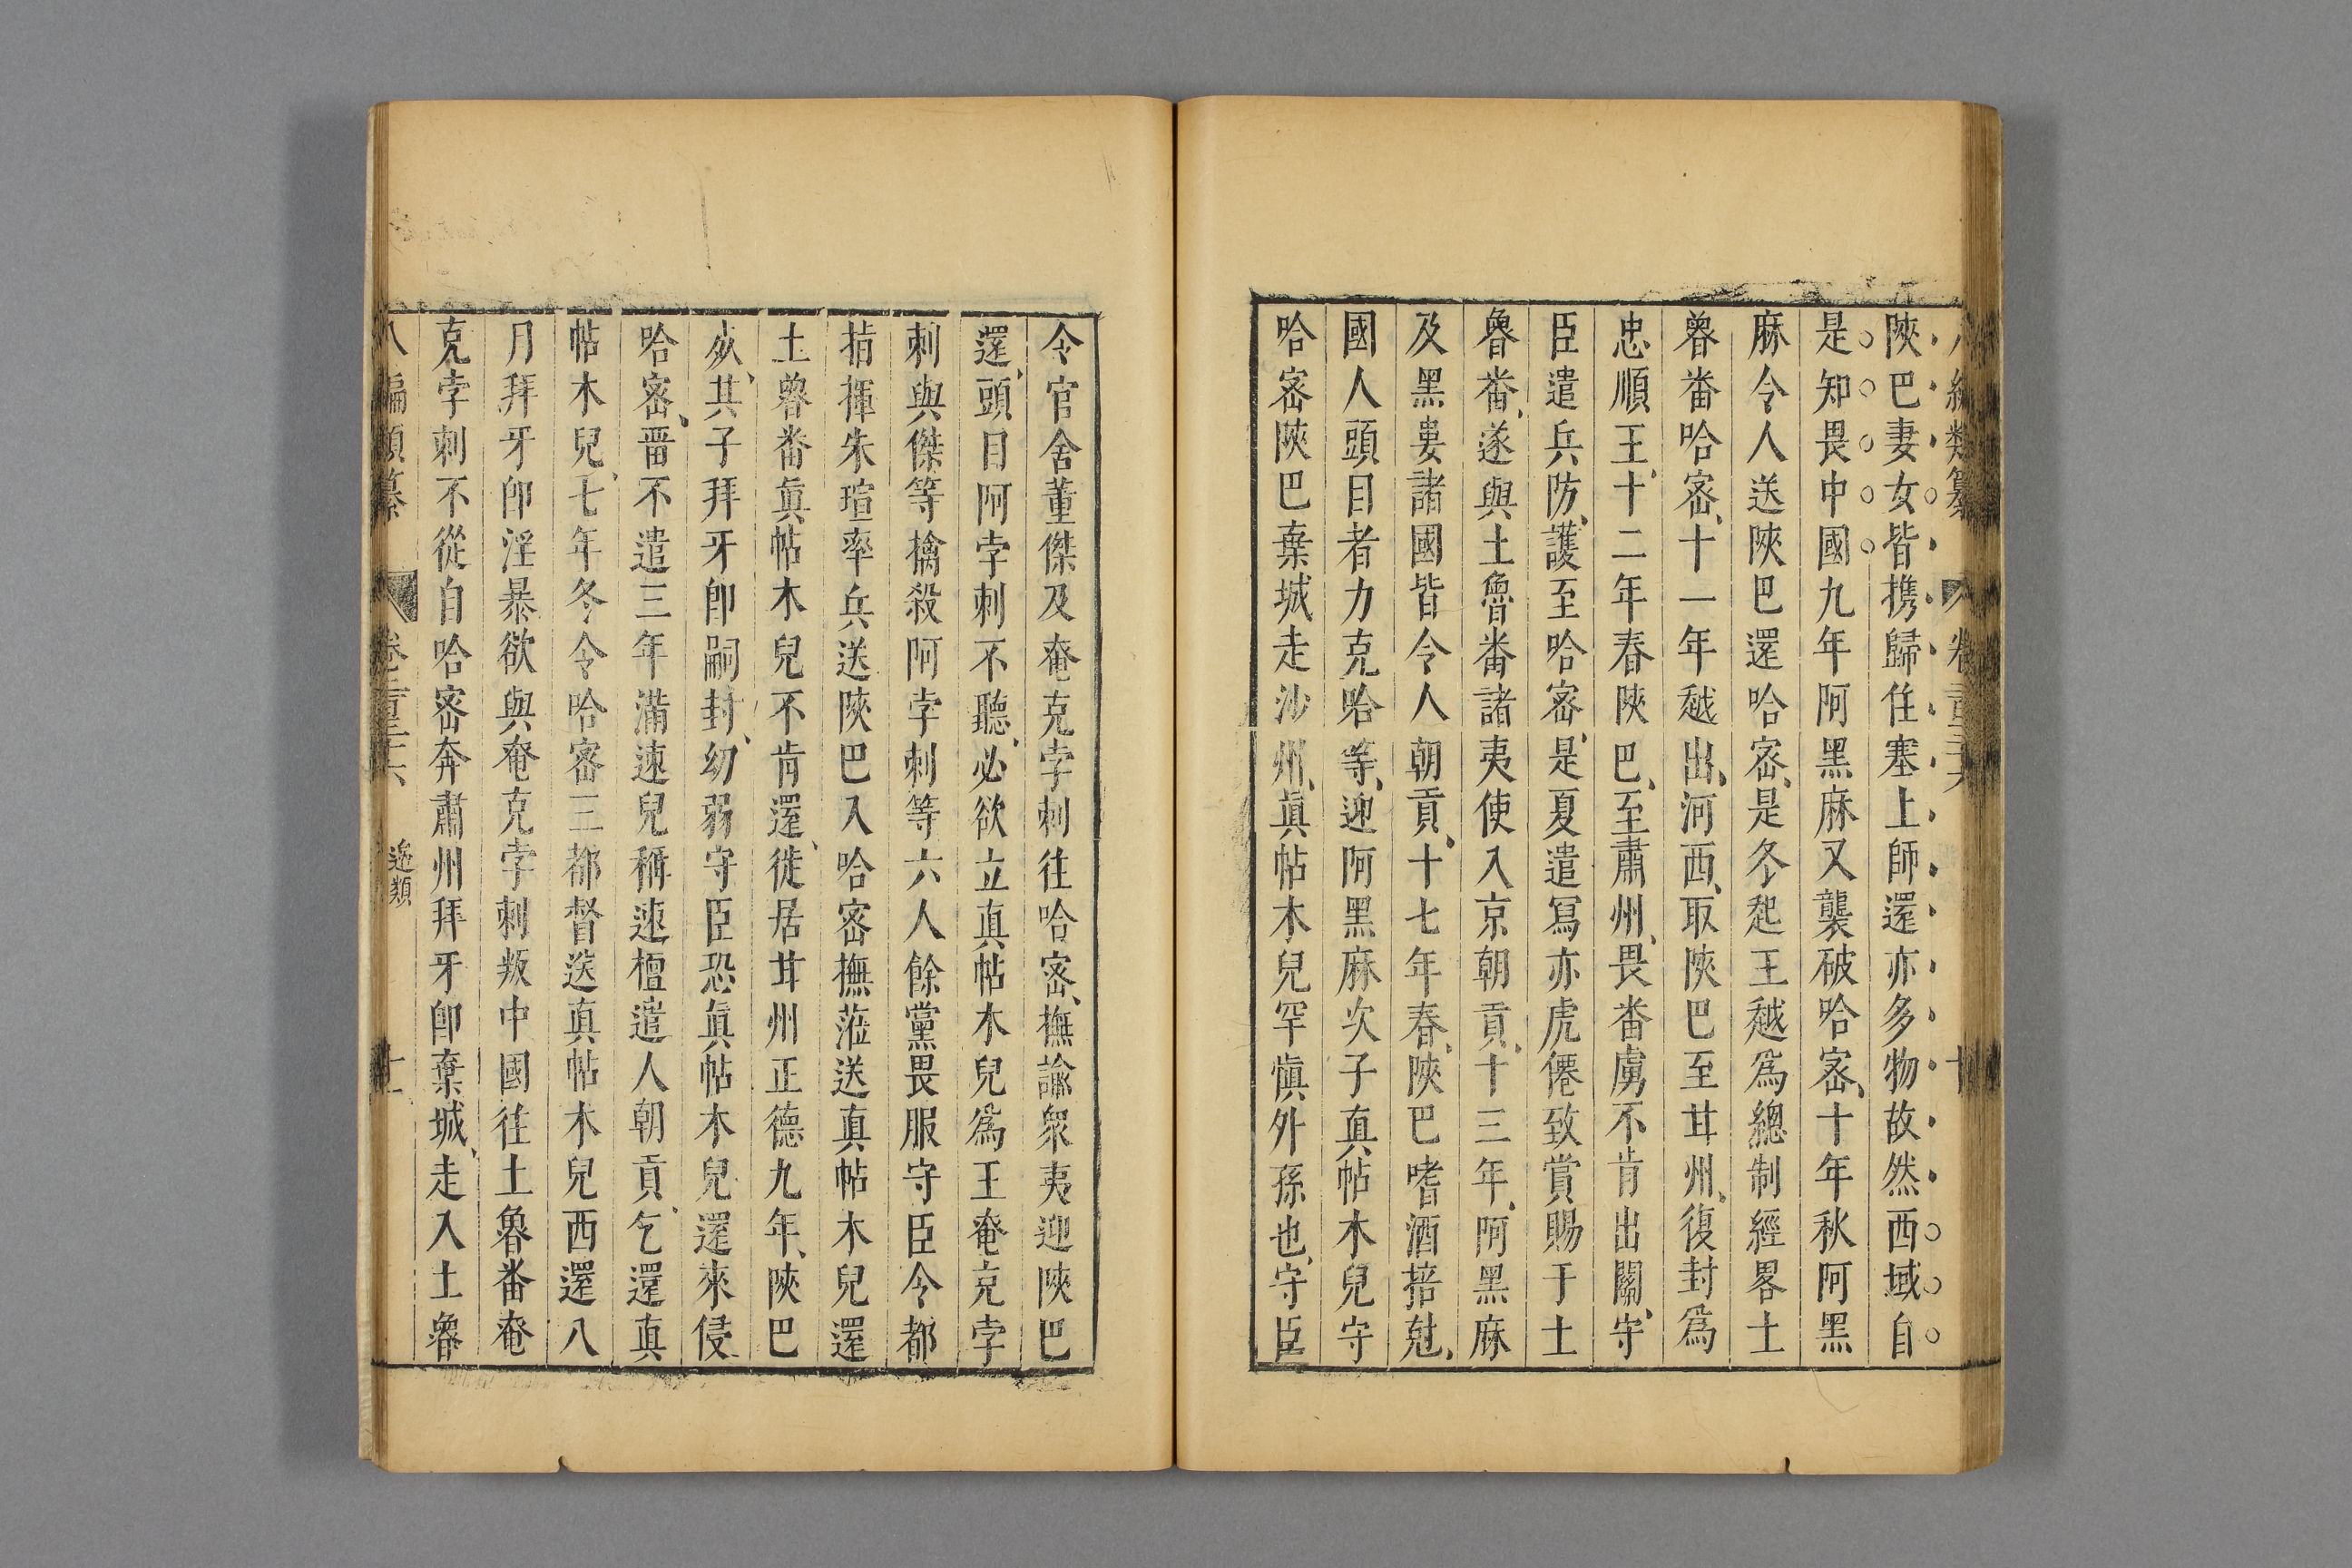 陜巴妻女皆携歸住塞上師還亦多物故然西域自
是知畏中國九年阿黑麻又襲破哈宻十年秋阿黑
麻令人送陜巴還哈宻是冬起王越爲總制經畧土
魯畨哈宻十一年越出河西取陜巴至甘州復封爲
忠順王十二年春陜巴至肅州畏畨虜不肯出關守
臣遣兵防護至哈宻是夏遣寫亦虎僊致賞賜于土
魯畨遂與土魯畨諸夷使入京朝貢十三年阿黑麻
及黑婁諸國皆令人朝貢十七年春陜巴嗜酒掊尅
國人頭目者力克哈等迎阿黑麻次子真帖木兒守
哈宻陜巴棄城走沙州真帖木兒罕愼外孫也守臣
令官舍董傑及奄克孛刺往哈宻撫諭衆夷迎陜巴
還頭目阿孛刺不聽必欲立真帖木兒爲王奄克孛
刺與傑等擒殺阿孛刺等六人餘黨畏服守臣令都
指揮朱瑄率兵送陜巴入哈宻撫蒞送真帖木兒還
土魯畨真帖木兒不肯還徙居甘州正德九年陜巴
死其子拜牙卽嗣封幼弱守臣恐真帖木兒還來侵
哈宻畱不遣三年滿速兒稱速檀遣人朝貢乞還真
帖木兒七年冬令哈宻三都督送真帖木兒西還八
月拜牙卽淫暴欲與奄克孛刺叛中國往土魯畨奄
克孛刺不從自哈宻奔肅州拜牙卽棄城走入土魯
八編類纂 卷二百三十六 邊類 十一